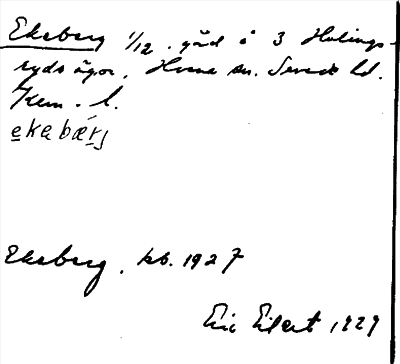 Ekeberg 1/12. gård å 3 Hulings-
ryds ägor, Horns sn. Sevede hd.
Kalm. l.
ekabærj
Ekeberg, kb. 1927
Eric Eilert 1929